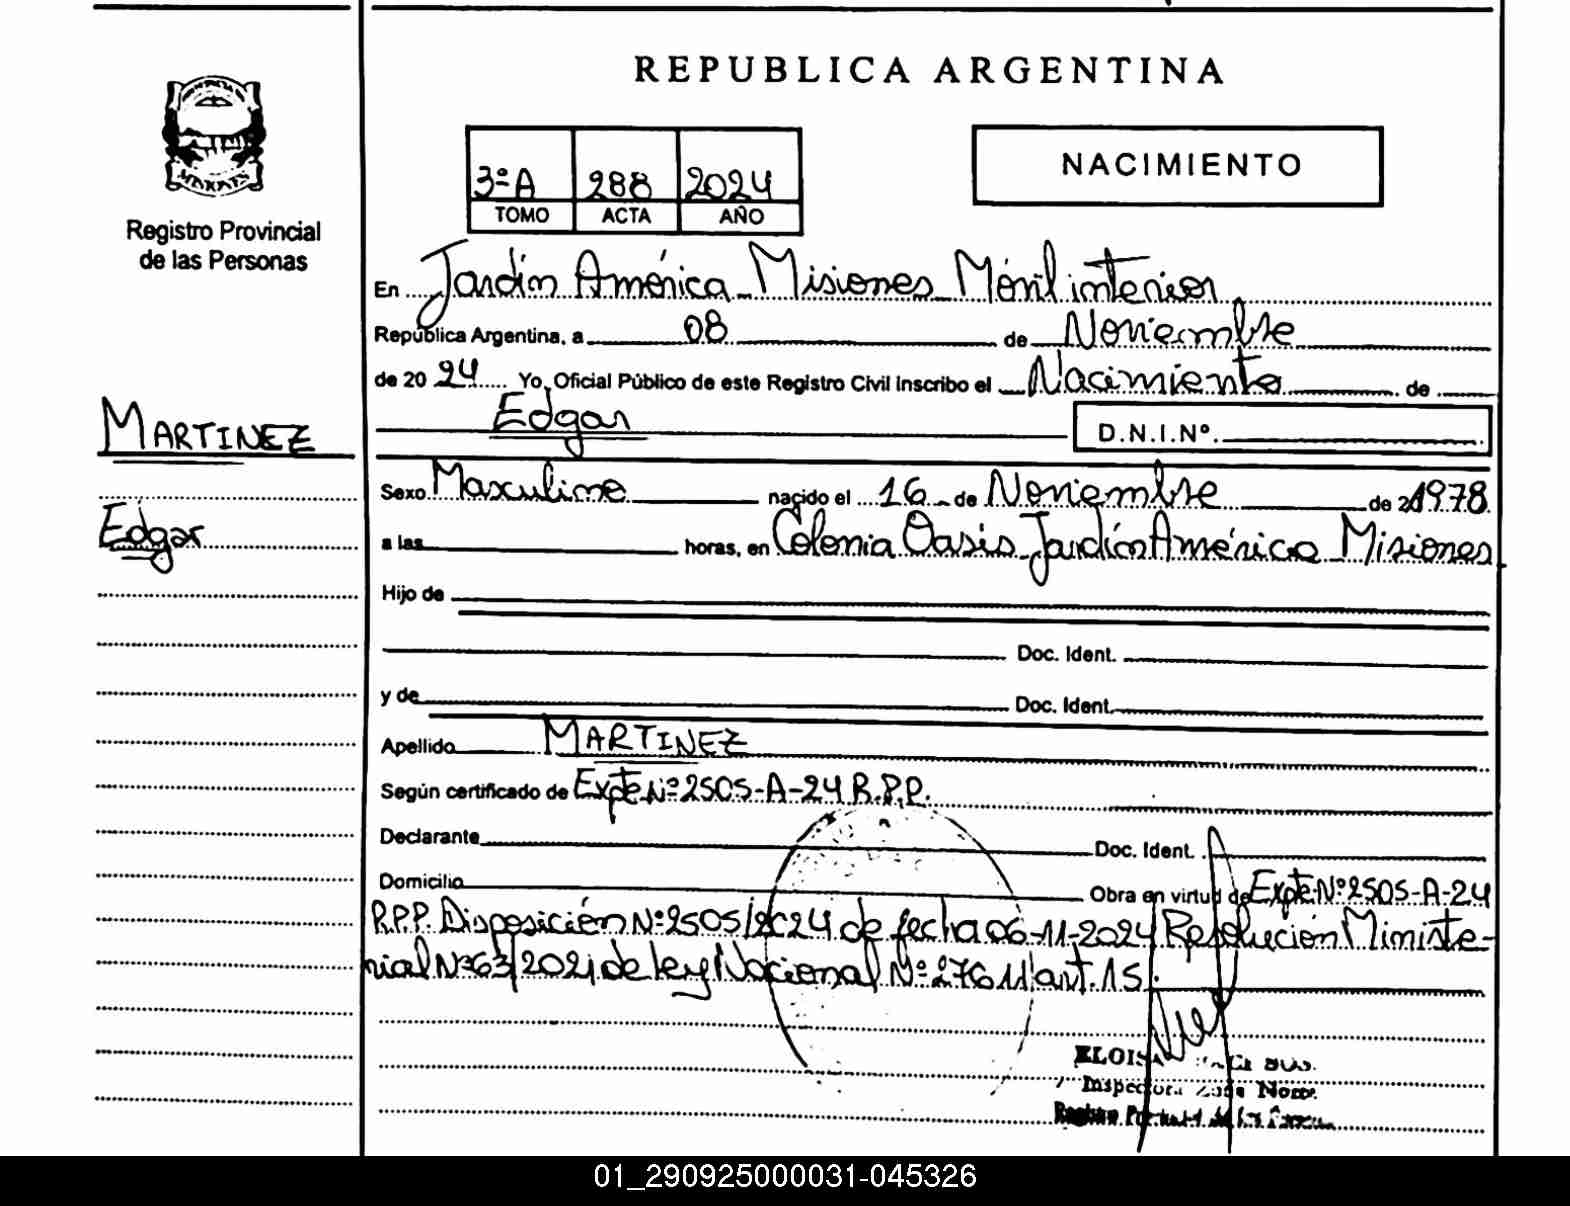 REPUBLICA ARGENTINA
MISIONES
Registro Provincial
de las Personas
3ºA 288 2024
TOMO ACTA AÑO
NACIMIENTO
En Jardín América Misiones Móvil interior
República Argentina, a 08 de Noviembre
de 2024 Yo, Oficial Público de este Registro Civil Inscribo el Nacimiento de
Edgar D.N.I.Nº.
MARTINEZ
Edgar
Sexo Masculino nacido el 16 de Noviembre de 1978
a las horas, en Colonia Oasis Jardín América Misiones
Hijo de
Doc. Ident.
y de Doc. Ident.
Apellido MARTINEZ
Según certificado de Expte Nº 2505-A-24 R.P.P.
Declarante Doc. Ident.
Domicilio Obra en virtud de Expte Nº 2505-A-24
R.P.P. Disposición Nº 2505/2024 de fecha 06-11-2024 Resolución Ministe-
rial Nº 63/2021 de Ley Nacional Nº 27611 art. 15.
Inspectora Zona Norte
Registro Provincial de las Personas
01_290925000031-045326